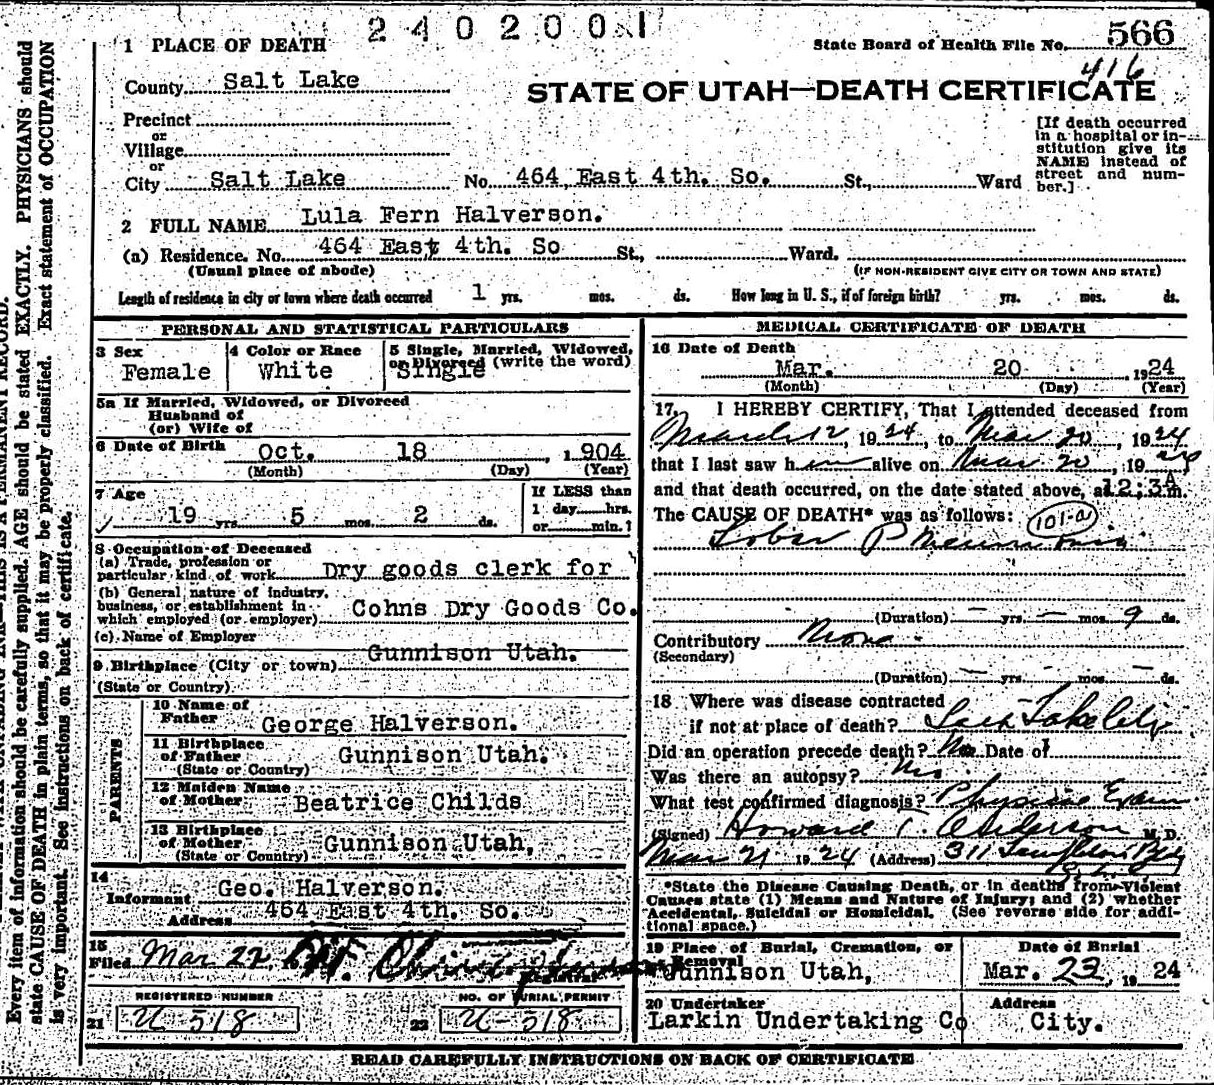 2402001
1 PLACE OF DEATH
State Board of Health File No. 566
416
County Salt Lake
STATE OF UTAH—DEATH CERTIFICATE
Precinct
or
Village
or
City Salt Lake No. 464 East 4th. So. St., Ward
[If death occurred
in a hospital or in-
stitution give its
NAME instead of
street and num-
ber.]
2 FULL NAME Lula Fern Halverson.
(a) Residence. No. 464 East 4th. So St., Ward.
(Usual place of abode) (IF NON-RESIDENT GIVE CITY OR TOWN AND STATE)
Length of residence in city or town where death occurred 1 yrs. mos. ds. How long in U. S., if of foreign birth? yrs. mos. ds.
PERSONAL AND STATISTICAL PARTICULARS
3 Sex
Female
4 Color or Race
White
5 Single, Married, Widowed,
or Divorced (write the word)
Single
5a If Married, Widowed, or Divorced
Husband of
(or) Wife of
6 Date of Birth Oct. 18, 1904
(Month) (Day) (Year)
7 Age
19 yrs 5 mos. 2 ds.
If LESS than
1 day hrs.
or min.?
8 Occupation of Deceased
(a) Trade, profession or
particular kind of work Dry goods clerk for
(b) General nature of industry,
business, or establishment in
which employed (or employer) Cohns Dry Goods Co.
(c) Name of Employer
9 Birthplace (City or town) Gunnison Utah.
(State or Country)
PARENTS
10 Name of
Father George Halverson.
11 Birthplace
of Father Gunnison Utah.
(State or Country)
12 Maiden Name
of Mother Beatrice Childs
13 Birthplace
of Mother Gunnison Utah,
(State or Country)
14
Informant Geo. Halverson.
Address 464 East 4th. So.
15
Filed Mar 22, 19
Registrar
REGISTERED NUMBER
21 U 518
NO. OF BURIAL PERMIT
22 U-518
MEDICAL CERTIFICATE OF DEATH
16 Date of Death
Mar. 20, 1924
(Month) (Day) (Year)
17. I HEREBY CERTIFY, That I attended deceased from
March 12, 1924, to Mar 20, 1924
that I last saw h er alive on Mar 20, 1924
and that death occurred, on the date stated above, at 12;3 A m.
The CAUSE OF DEATH* was as follows: 101-a
Lobar Pneumonia
(Duration) — yrs. — mos. 9 ds.
Contributory None
(Secondary)
(Duration) — yrs. — mos. — ds.
18 Where was disease contracted
if not at place of death? Salt Lake City
Did an operation precede death? No Date of
Was there an autopsy? No.
What test confirmed diagnosis? Physical Exam
(Signed) Howard T. Anderson M. D.
Mar 21 1924 (Address) 311
*State the Disease Causing Death, or in deaths from Violent
Causes state (1) Means and Nature of Injury; and (2) whether
Accidental, Suicidal or Homicidal. (See reverse side for addi-
tional space.)
19 Place of Burial, Cremation, or
Removal
Gunnison Utah,
Date of Burial
Mar. 23, 1924
20 Undertaker
Larkin Undertaking Co
Address
City.
READ CAREFULLY INSTRUCTIONS ON BACK OF CERTIFICATE
Every item of information should be carefully supplied. AGE should be stated EXACTLY. PHYSICIANS should
state CAUSE OF DEATH in plain terms, so that it may be properly classified. Exact statement of OCCUPATION
is very important. See instructions on back of certificate.